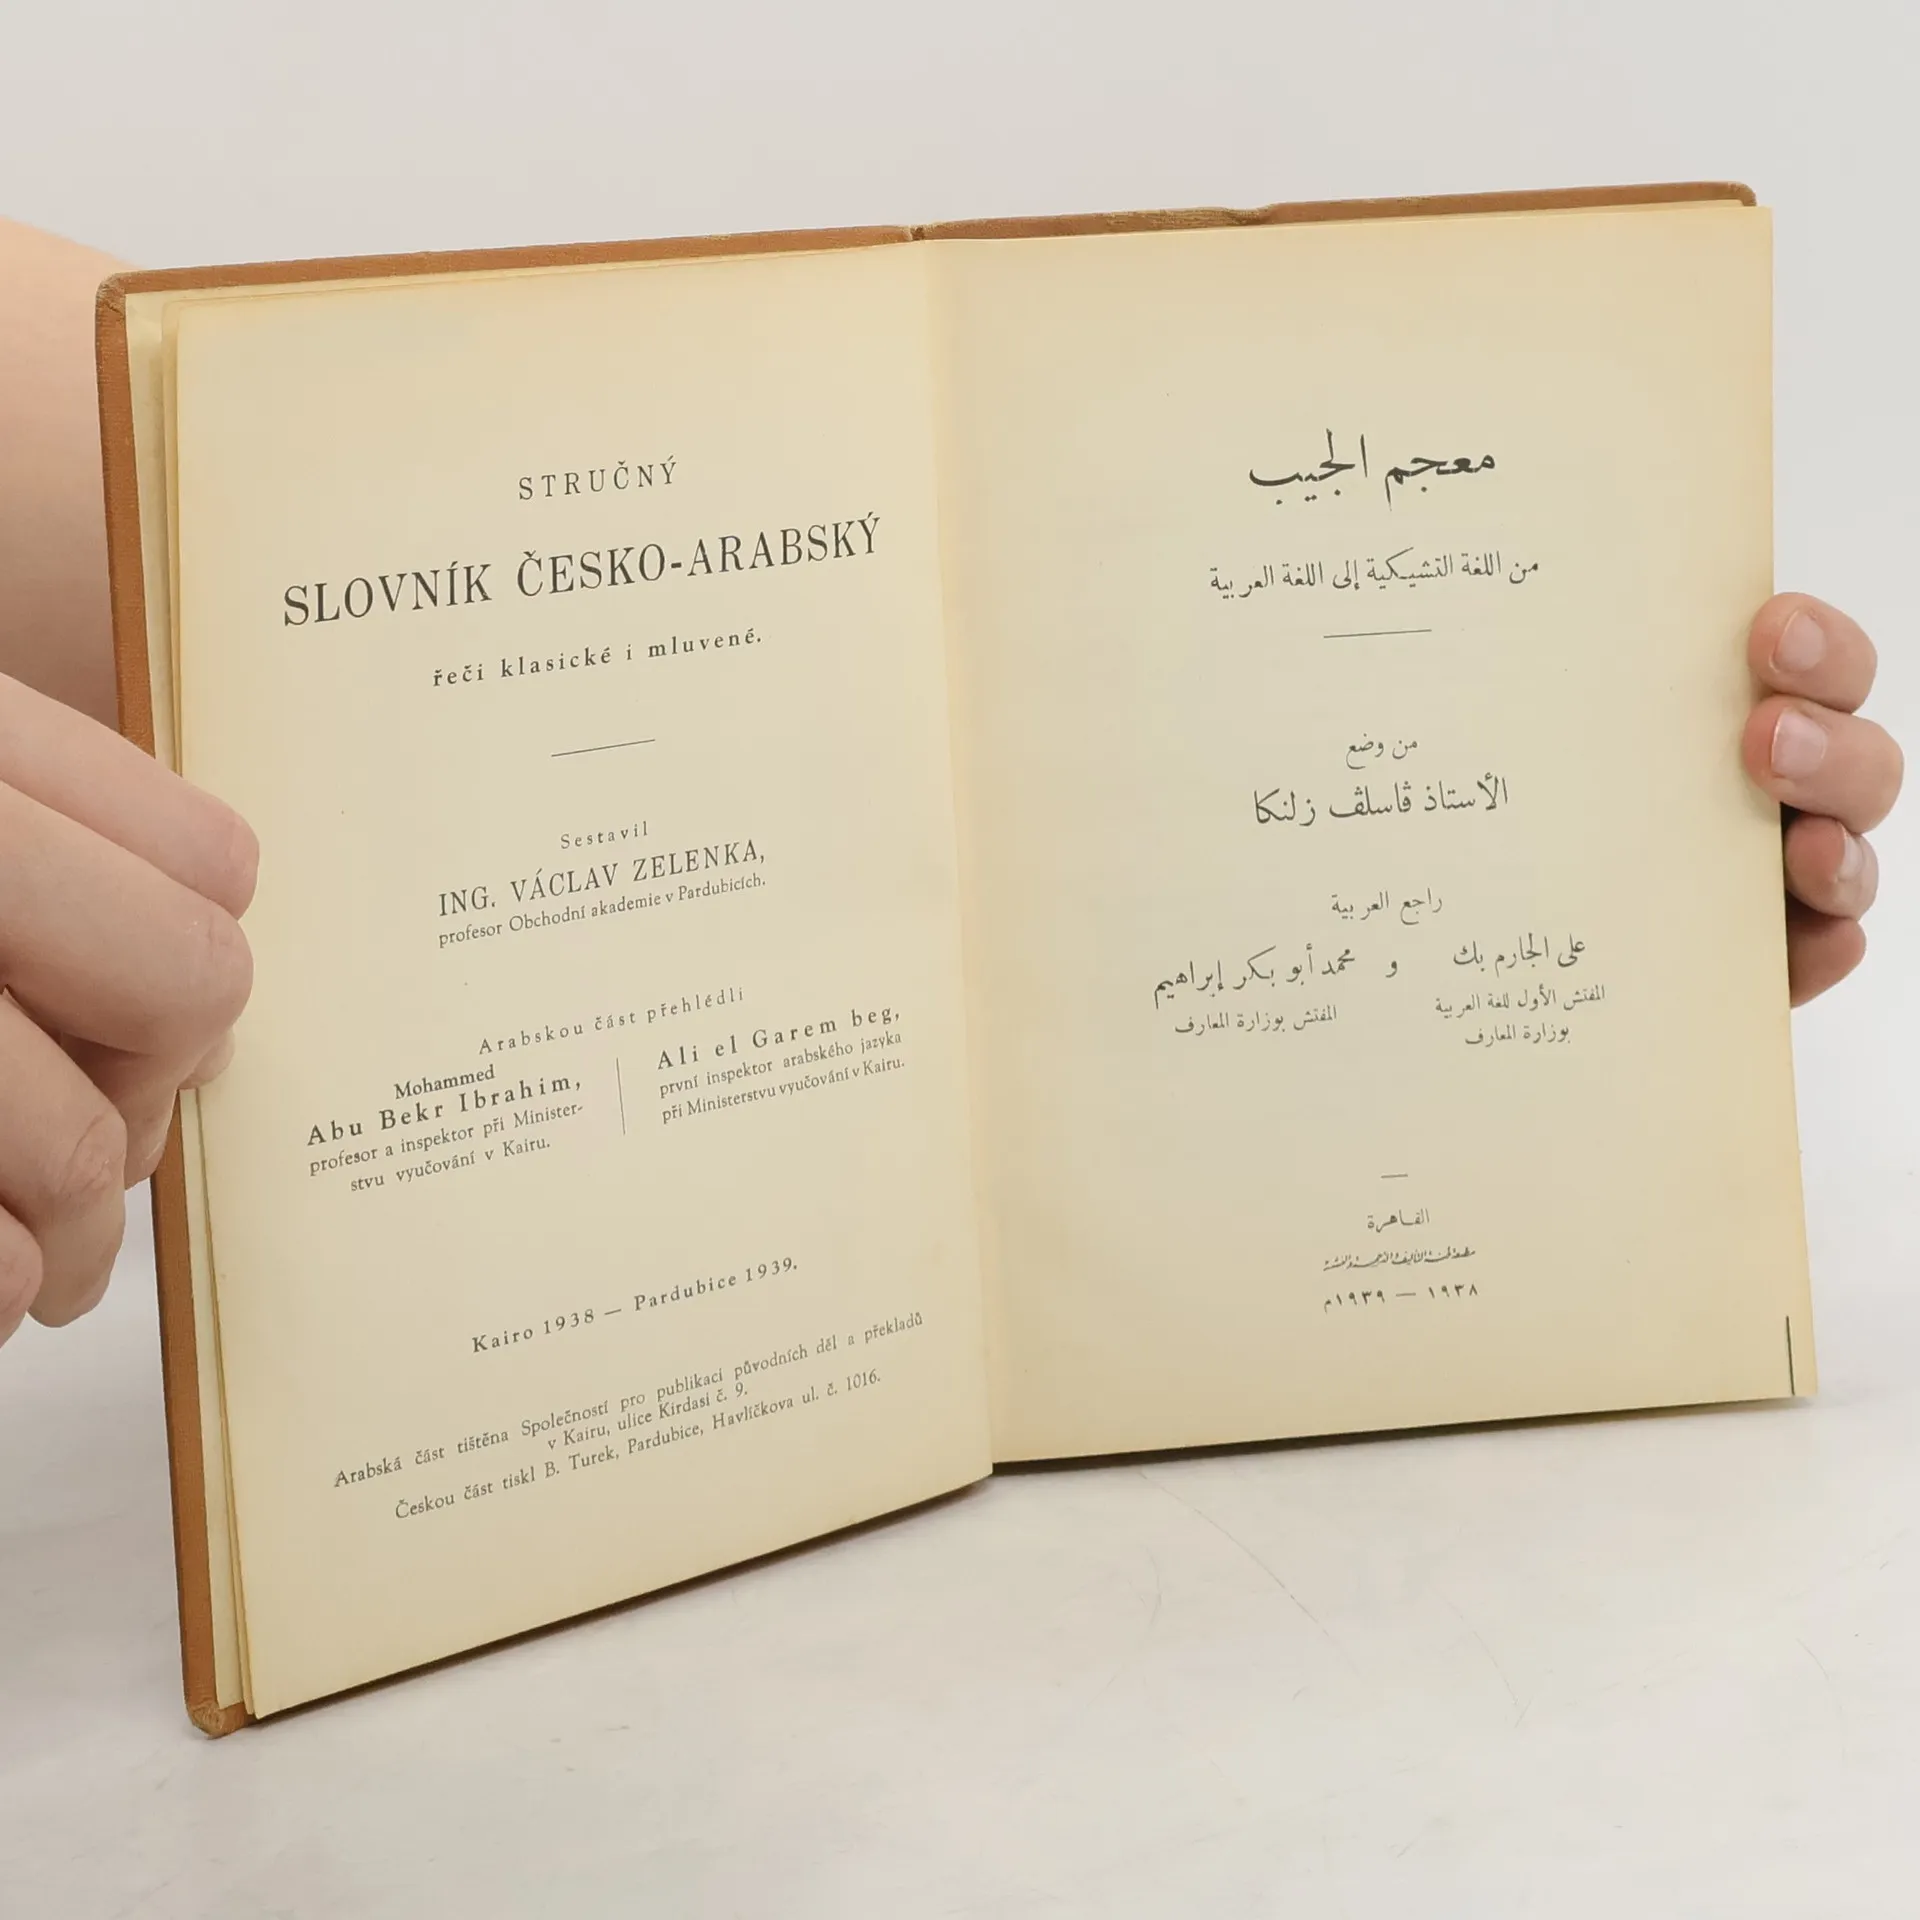 STRUČNÝ
SLOVNÍK ČESKO-ARABSKÝ
řeči klasické i mluvené.
Sestavil
ING. VÁCLAV ZELENKA,
profesor Obchodní akademie v Pardubicích.
Arabskou část přehlédli
Mohammed
Abu Bekr Ibrahim,
profesor a inspektor při Minister-
stvu vyučování v Kairu.
Ali el Garem beg,
první inspektor arabského jazyka
při Ministerstvu vyučování v Kairu.
Kairo 1938 — Pardubice 1939.
Arabská část tištěna Společností pro publikaci původních děl a překladů
v Kairu, ulice Kirdasi č. 9.
Českou část tiskl B. Turek, Pardubice, Havlíčkova ul. č. 1016.
معجم الجيب
من اللغة التشيكية إلى اللغة العربية
من وضع
الأستاذ ڤاسلڤ زلنكا
راجع العربية
على الجارم بك و محمد أبو بكر إبراهيم
المفتش الأول للغة العربية
بوزارة المعارف
المفتش بوزارة المعارف
القاهرة
مطبعة لجنة التأليف والترجمة والنشر
١٩٣٨ — ١٩٣٩م